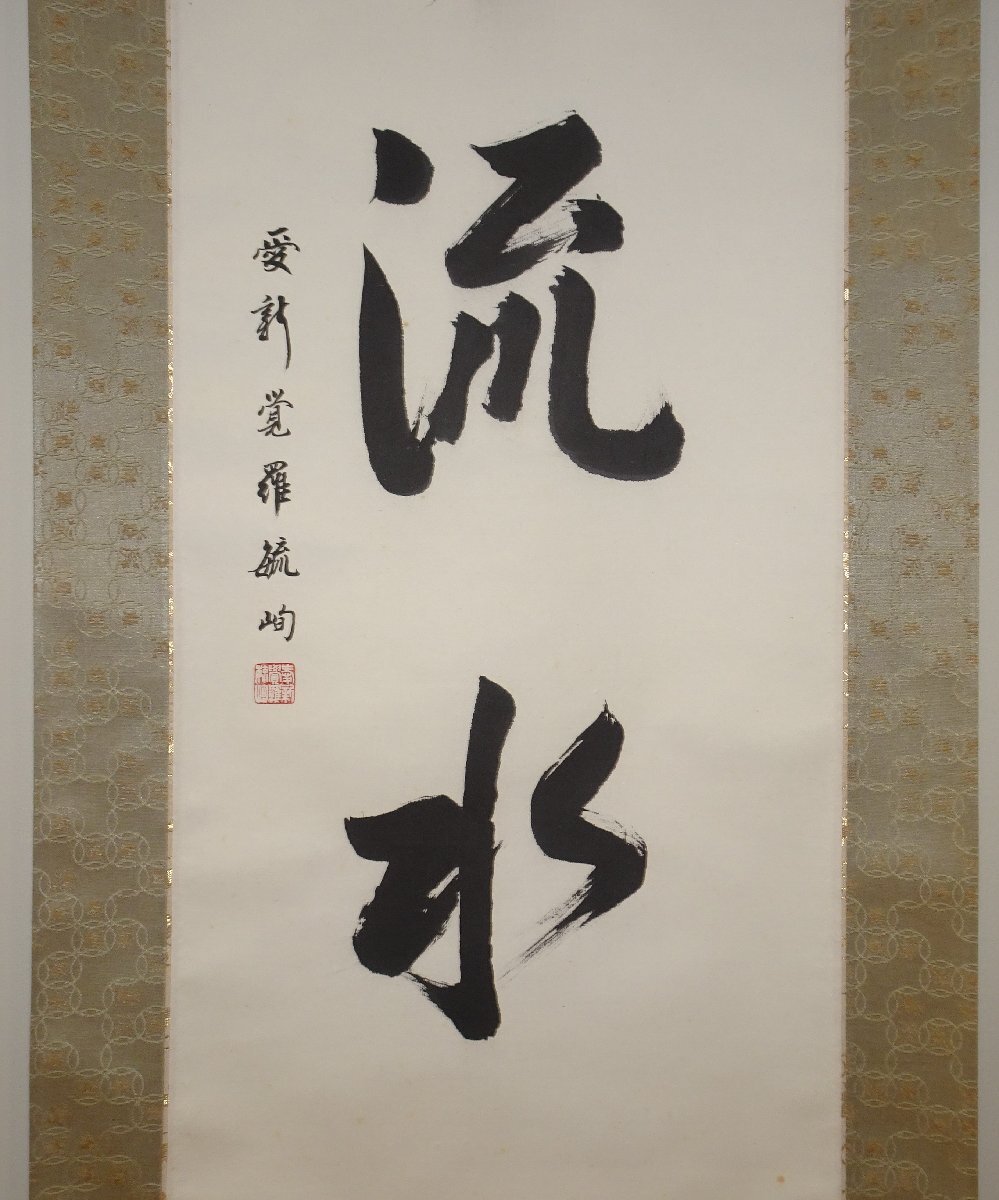 流水
愛新覚羅毓峋